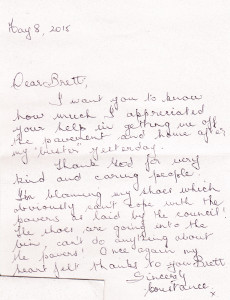 May 8, 2015
Dear Brett,
I want you to know
how much I appreciated
your help in getting me off
the pavement and home after
my "buster" yesterday.
Thank God for very
kind and caring people.
I'm blaming my shoes which
obviously can't cope with the
pavers as laid by the council!
The shoes are going into the
bin, can't do anything about
the pavers! Once again my
heart felt thanks to you Brett
Sincerely
Constance
x